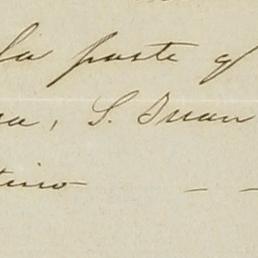 la parte q
a, S. Juan
tino - -